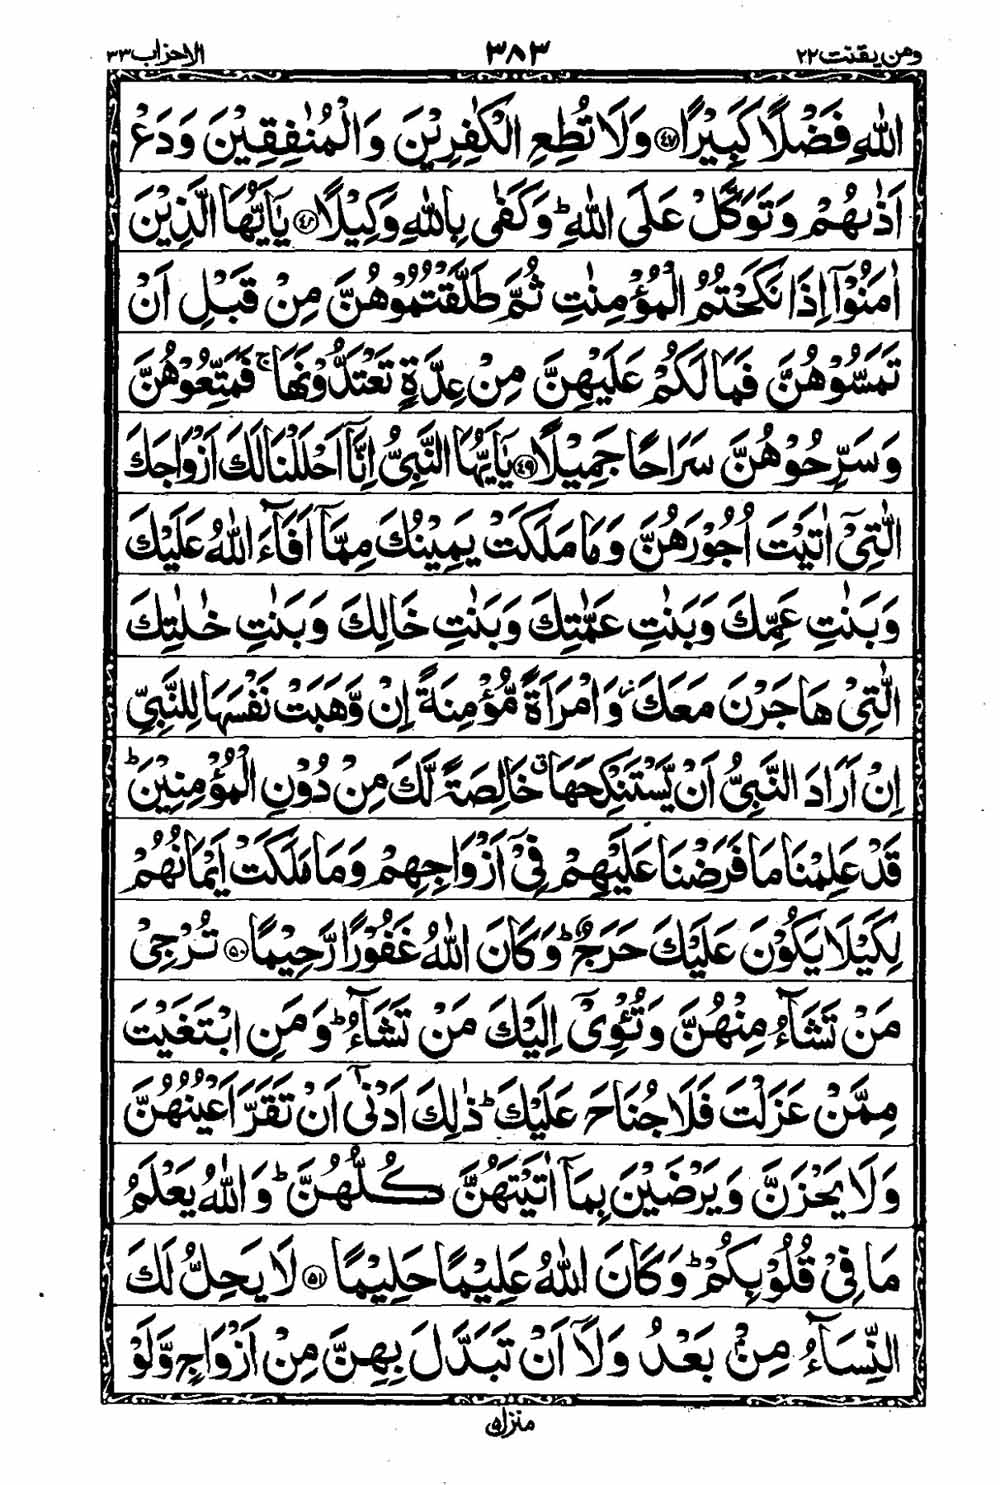 ومن يقنت ٢٢
٣٨٣
الاحزاب ٣٣
اللّٰهِ فَضْلًا كَبِيْرًا ﴿٤٧﴾ وَلَا تُطِعِ الْكٰفِرِيْنَ وَالْمُنٰفِقِيْنَ وَدَعْ
اَذٰىهُمْ وَتَوَكَّلْ عَلَى اللّٰهِ ؕ وَكَفٰى بِاللّٰهِ وَكِيْلًا ﴿٤٨﴾ يٰۤاَيُّهَا الَّذِيْنَ
اٰمَنُوْۤا اِذَا نَكَحْتُمُ الْمُؤْمِنٰتِ ثُمَّ طَلَّقْتُمُوْهُنَّ مِنْ قَبْلِ اَنْ
تَمَسُّوْهُنَّ فَمَا لَكُمْ عَلَيْهِنَّ مِنْ عِدَّةٍ تَعْتَدُّوْنَهَا ۚ فَمَتِّعُوْهُنَّ
وَسَرِّحُوْهُنَّ سَرَاحًا جَمِيْلًا ﴿٤٩﴾ يٰۤاَيُّهَا النَّبِيُّ اِنَّاۤ اَحْلَلْنَا لَكَ اَزْوَاجَكَ
الّٰتِيْۤ اٰتَيْتَ اُجُوْرَهُنَّ وَمَا مَلَكَتْ يَمِيْنُكَ مِمَّاۤ اَفَآءَ اللّٰهُ عَلَيْكَ
وَبَنٰتِ عَمِّكَ وَبَنٰتِ عَمّٰتِكَ وَبَنٰتِ خَالِكَ وَبَنٰتِ خٰلٰتِكَ
الّٰتِيْ هَاجَرْنَ مَعَكَ ؗ وَامْرَاَةً مُّؤْمِنَةً اِنْ وَّهَبَتْ نَفْسَهَا لِلنَّبِيِّ
اِنْ اَرَادَ النَّبِيُّ اَنْ يَّسْتَنْكِحَهَا ۗ خَالِصَةً لَّكَ مِنْ دُوْنِ الْمُؤْمِنِيْنَ ؕ
قَدْ عَلِمْنَا مَا فَرَضْنَا عَلَيْهِمْ فِيْۤ اَزْوَاجِهِمْ وَمَا مَلَكَتْ اَيْمَانُهُمْ
لِكَيْلَا يَكُوْنَ عَلَيْكَ حَرَجٌ ؕ وَكَانَ اللّٰهُ غَفُوْرًا رَّحِيْمًا ﴿٥٠﴾ تُرْجِيْ
مَنْ تَشَآءُ مِنْهُنَّ وَتُـْٔوِيْۤ اِلَيْكَ مَنْ تَشَآءُ ؕ وَمَنِ ابْتَغَيْتَ
مِمَّنْ عَزَلْتَ فَلَا جُنَاحَ عَلَيْكَ ؕ ذٰلِكَ اَدْنٰۤى اَنْ تَقَرَّ اَعْيُنُهُنَّ
وَلَا يَحْزَنَّ وَيَرْضَيْنَ بِمَاۤ اٰتَيْتَهُنَّ كُلُّهُنَّ ؕ وَاللّٰهُ يَعْلَمُ
مَا فِيْ قُلُوْبِكُمْ ؕ وَكَانَ اللّٰهُ عَلِيْمًا حَلِيْمًا ﴿٥١﴾ لَا يَحِلُّ لَكَ
النِّسَآءُ مِنْۢ بَعْدُ وَلَاۤ اَنْ تَبَدَّلَ بِهِنَّ مِنْ اَزْوَاجٍ وَّلَوْ
منزل ٥